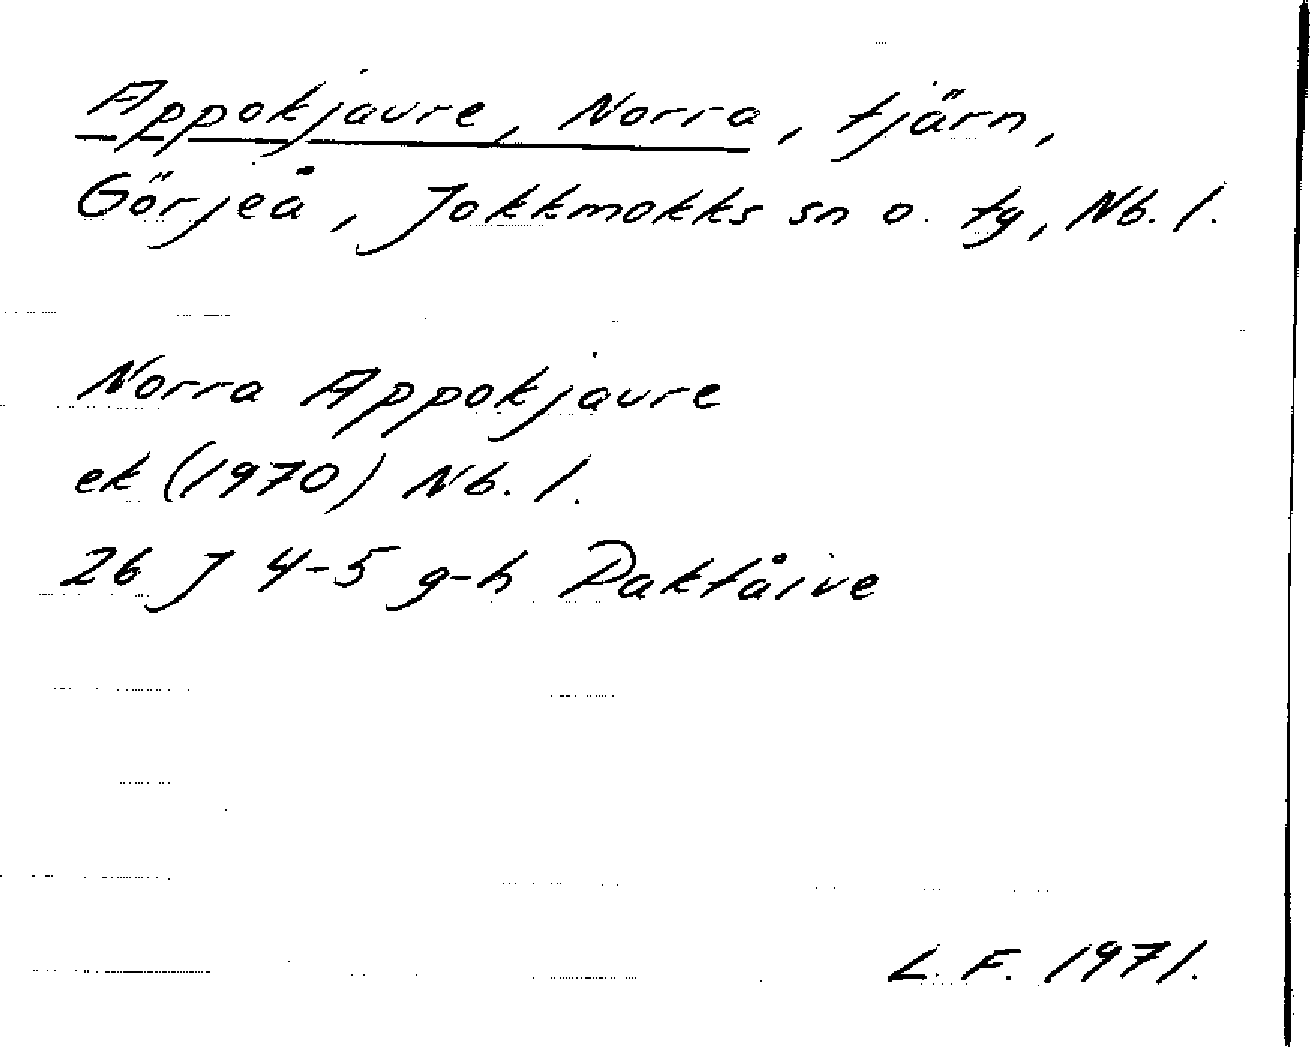 Appokjaure, Norra, tjärn,
Görjeå, Jokkmokks sn o. tg, Nb. l.
Norra Appokjaure
ek (1970) Nb. l.
26 J 4-5 g-h Paktåive
L. F. 1971.